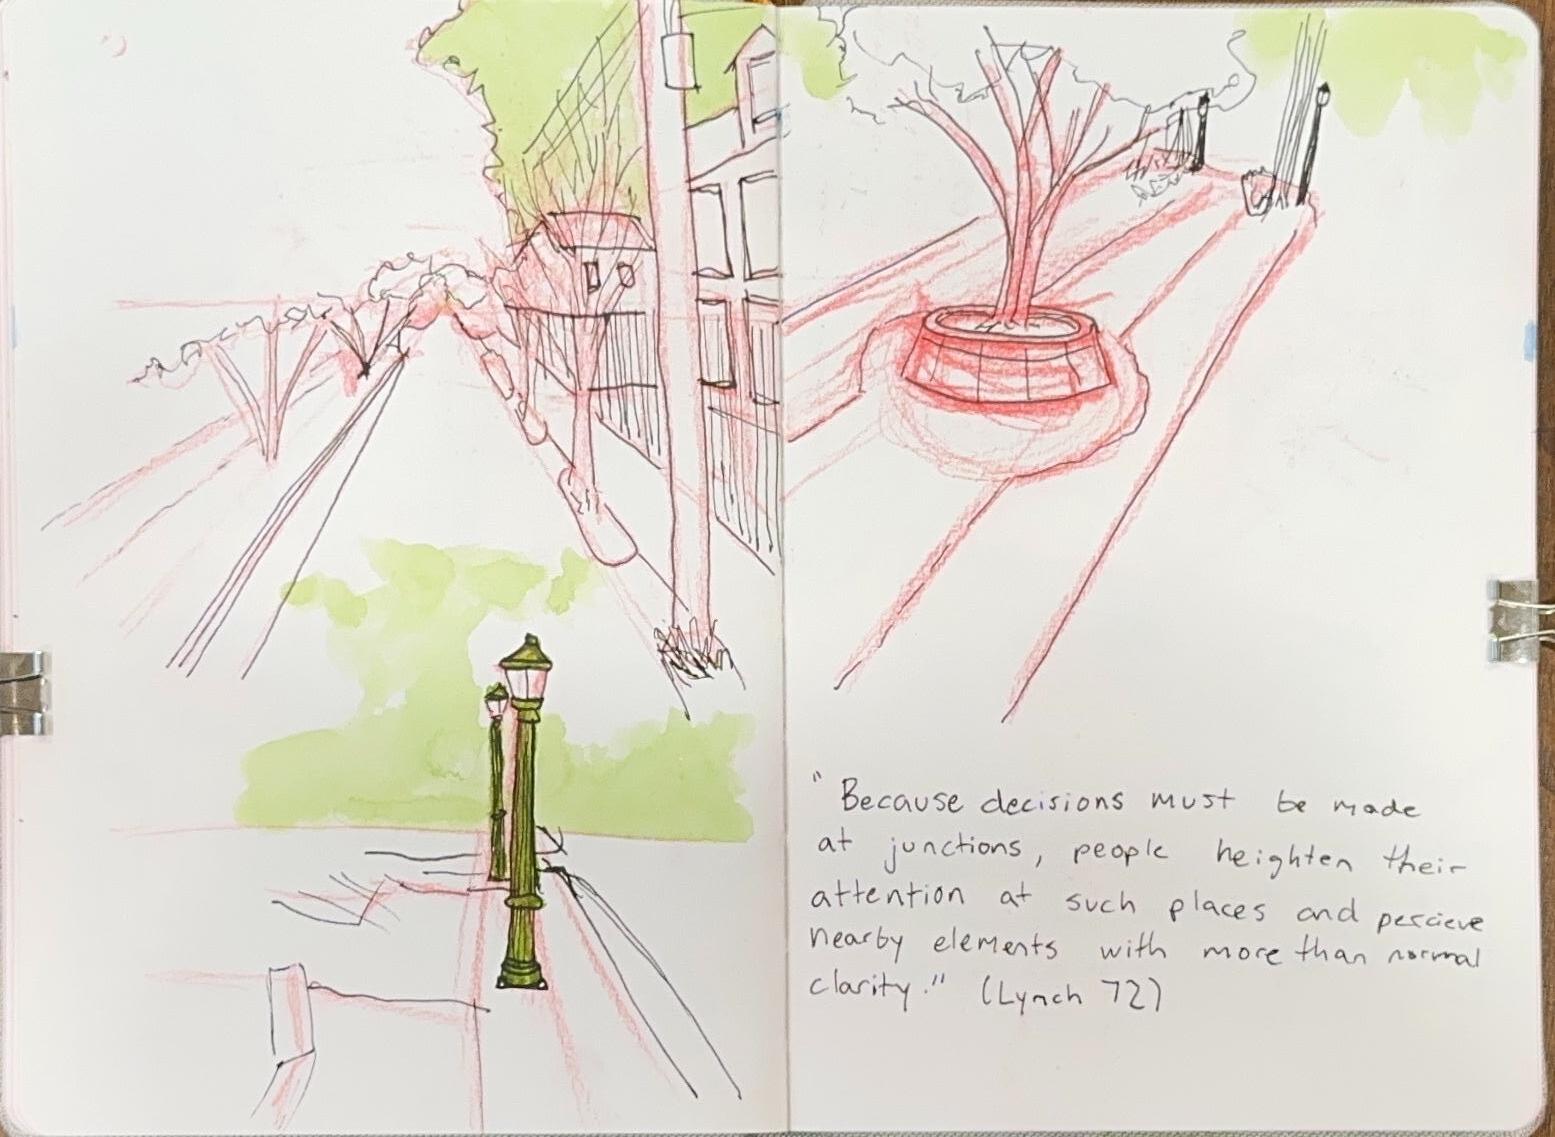 "Because decisions must be made
at junctions, people heighten their
attention at such places and percieve
nearby elements with more than normal
clarity." (Lynch 72)